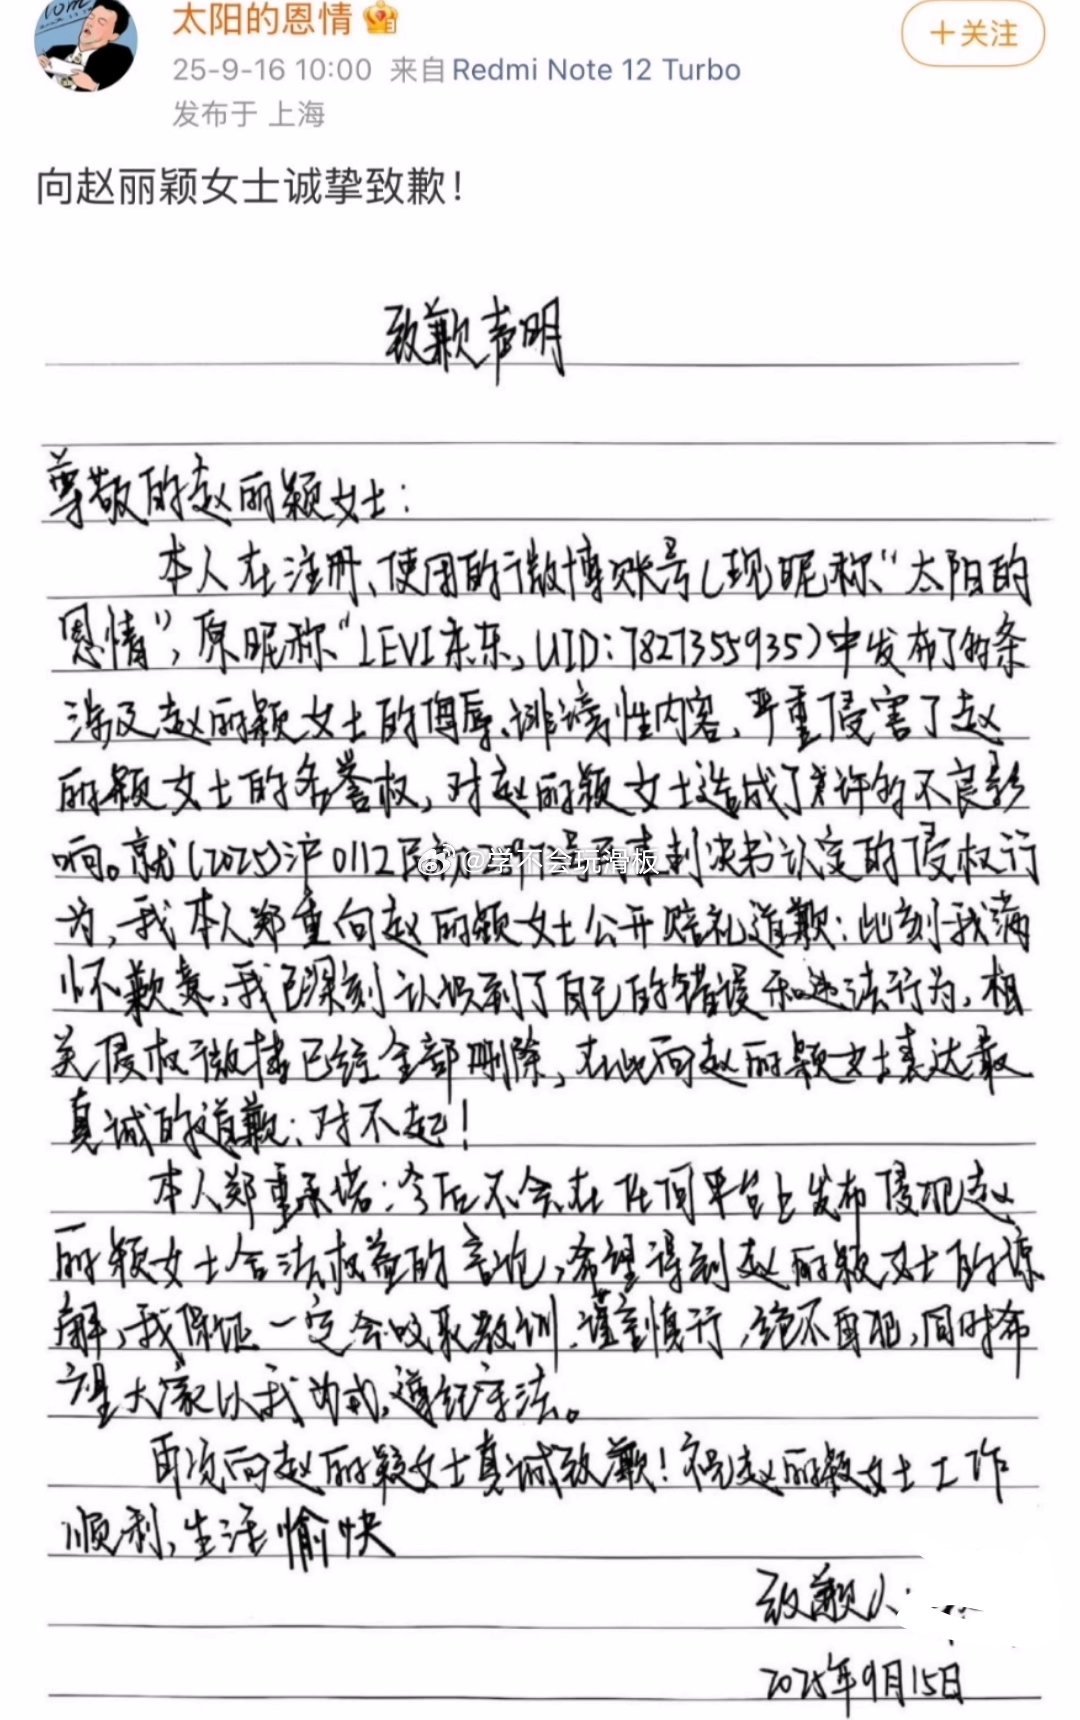 太阳的恩情
+关注
25-9-16 10:00 来自 Redmi Note 12 Turbo
发布于 上海
向赵丽颖女士诚挚致歉！
致歉声明
尊敬的赵丽颖女士：
本人在注册、使用的微博账号（现昵称“太阳的
恩情”，原昵称“LEVI京东，UID：7827355935）中发布了多条
涉及赵丽颖女士的侮辱、诽谤性内容，严重侵害了赵
丽颖女士的名誉权，对赵丽颖女士造成了多许的不良影
响。就（2025）沪0112民初 号民事判决书认定的侵权行
为，我本人郑重向赵丽颖女士公开赔礼道歉：此刻我满
怀歉意，我已深刻认识到了自己的错误和违法行为，相
关侵权微博已经全部删除，在此向赵丽颖女士表达最
真诚的道歉：对不起！
本人郑重承诺：今后不会在任何平台上发布侵犯赵
丽颖女士合法权益的言论，希望得到赵丽颖女士的谅
解，我保证一定会吸取教训、谨言慎行，绝不再犯，同时希
望大家以我为戒，遵纪守法。
再次向赵丽颖女士真诚致歉！祝赵丽颖女士工作
顺利，生活愉快
致歉人：
2025年9月15日
@学不会玩滑板